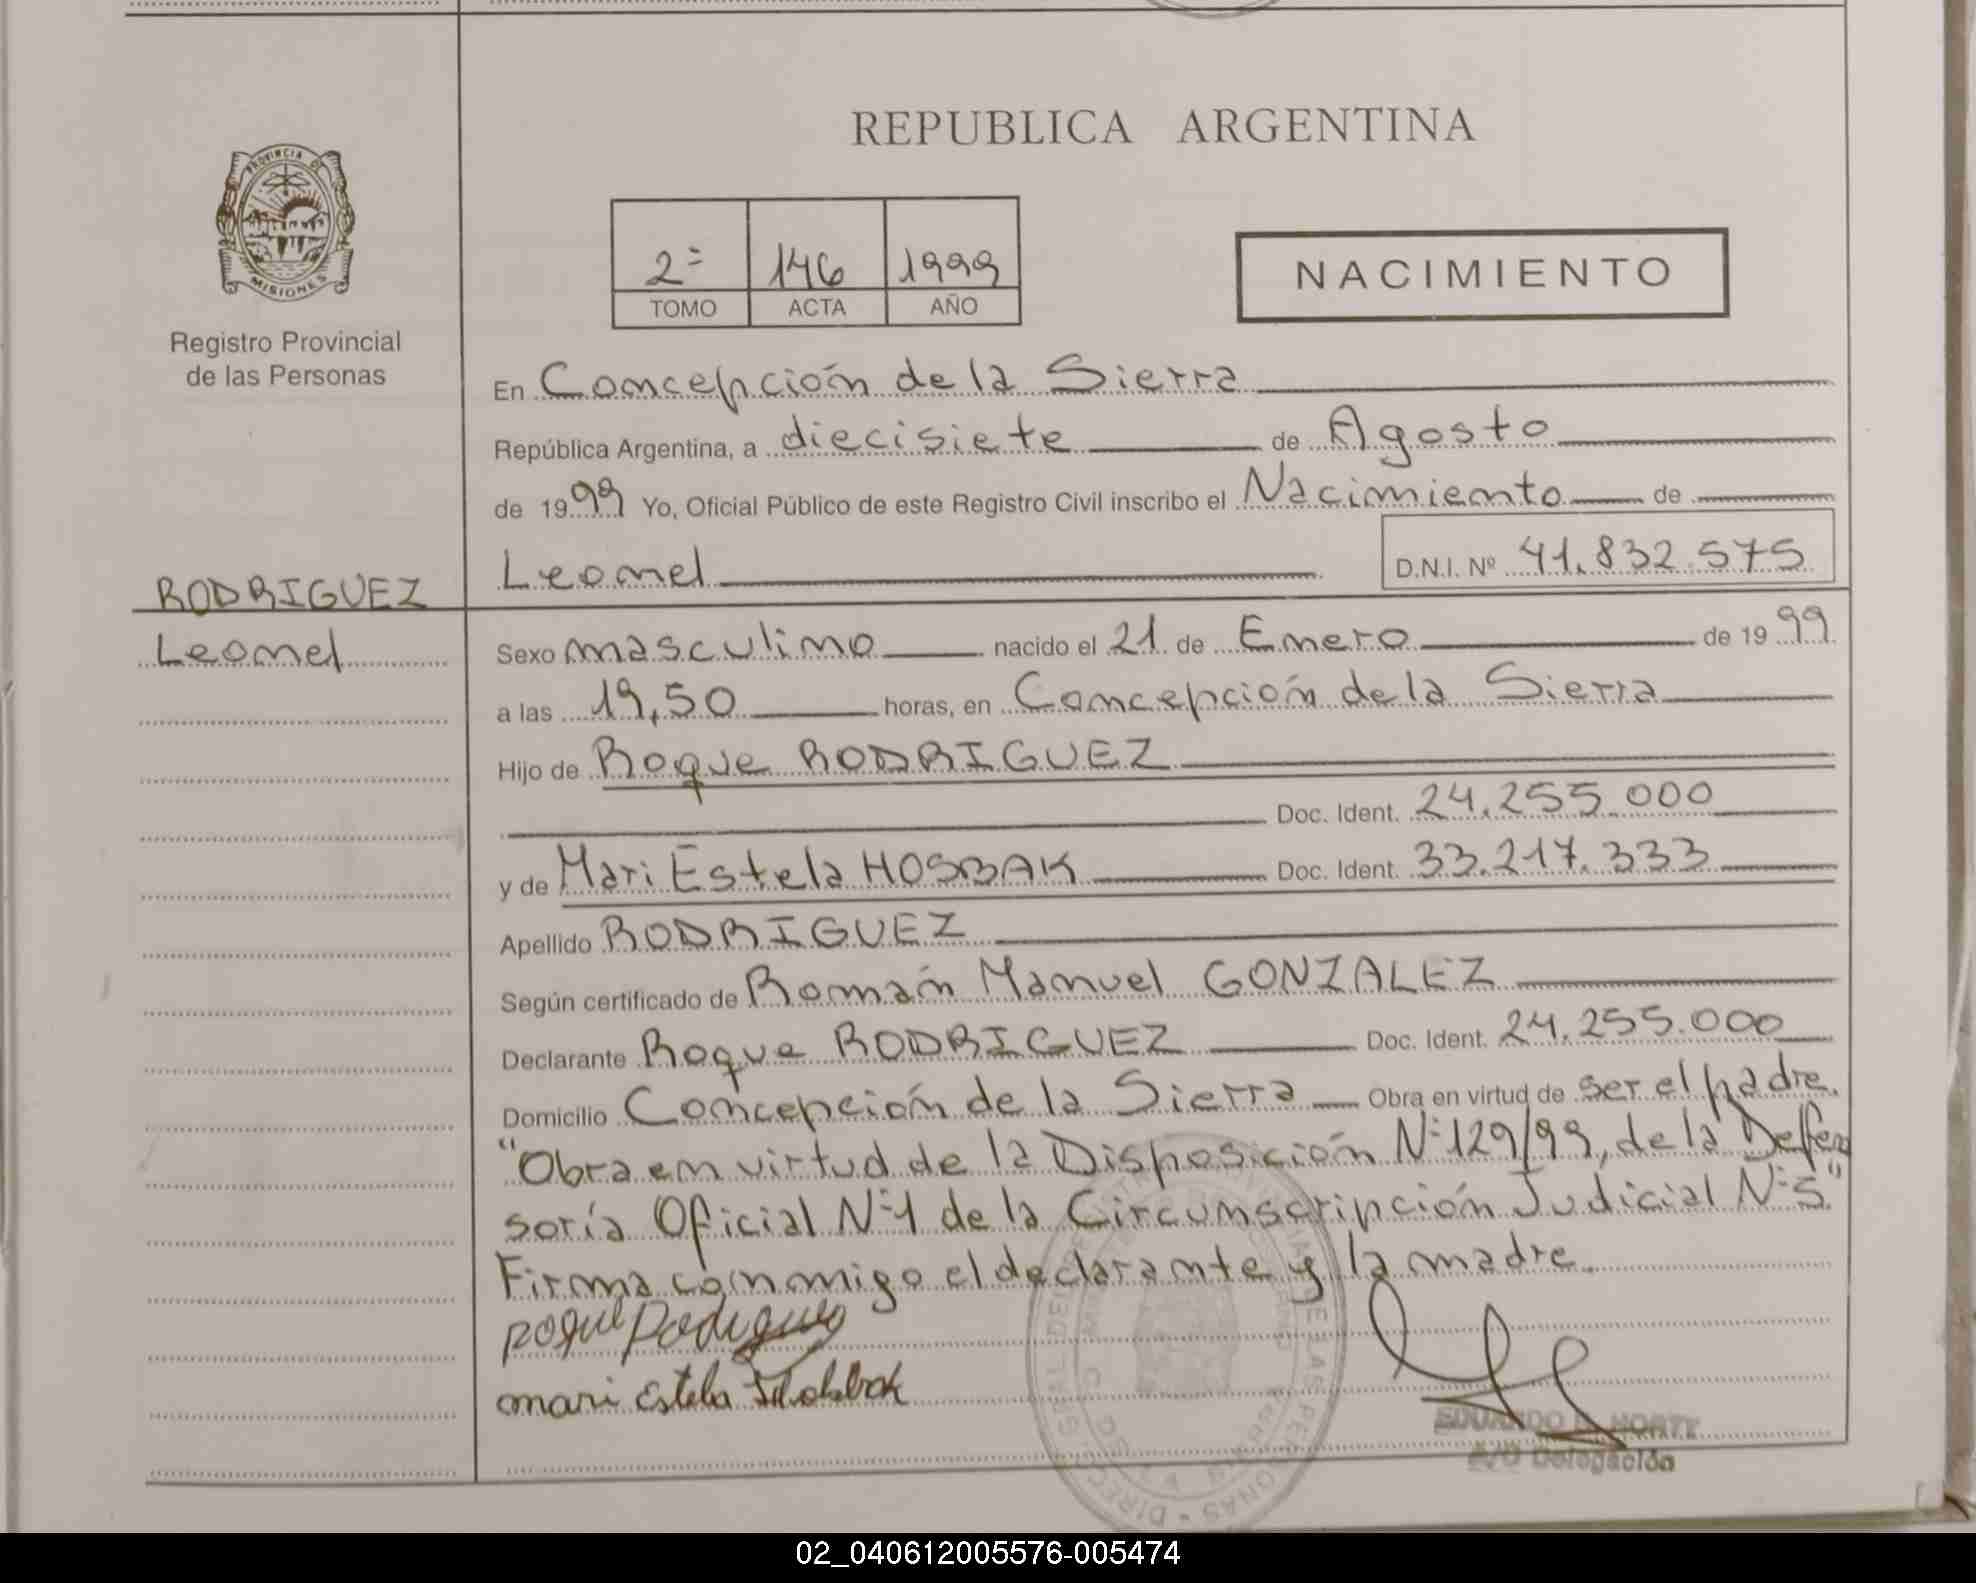 REPUBLICA ARGENTINA
PROVINCIA DE
MISIONES
Registro Provincial
de las Personas
2º 146 1999
TOMO ACTA AÑO
NACIMIENTO
En Concepción de la Sierra
República Argentina, a diecisiete de Agosto
de 1999 Yo, Oficial Público de este Registro Civil inscribo el Nacimiento de
Leonel D.N.I. Nº 41.832.575
RODRIGUEZ
Leonel
Sexo masculino nacido el 21 de Enero de 1999
a las 19,50 horas, en Concepción de la Sierra
Hijo de Roque RODRIGUEZ
Doc. Ident. 24.255.000
y de Mari Estela HOSBAK Doc. Ident. 33.217.333
Apellido RODRIGUEZ
Según certificado de Román Manuel GONZALEZ
Declarante Roque RODRIGUEZ Doc. Ident. 24.255.000
Domicilio Concepción de la Sierra Obra en virtud de ser el padre.
"Obra en virtud de la Disposición Nº 129/99, de la Defen
soría Oficial Nº 1 de la Circunscripción Judicial Nº 5."
Firma conmigo el declarante y la madre.
Roque Rodriguez
mari Estela
EDUARDO HORTT
Delegación
02_040612005576-005474